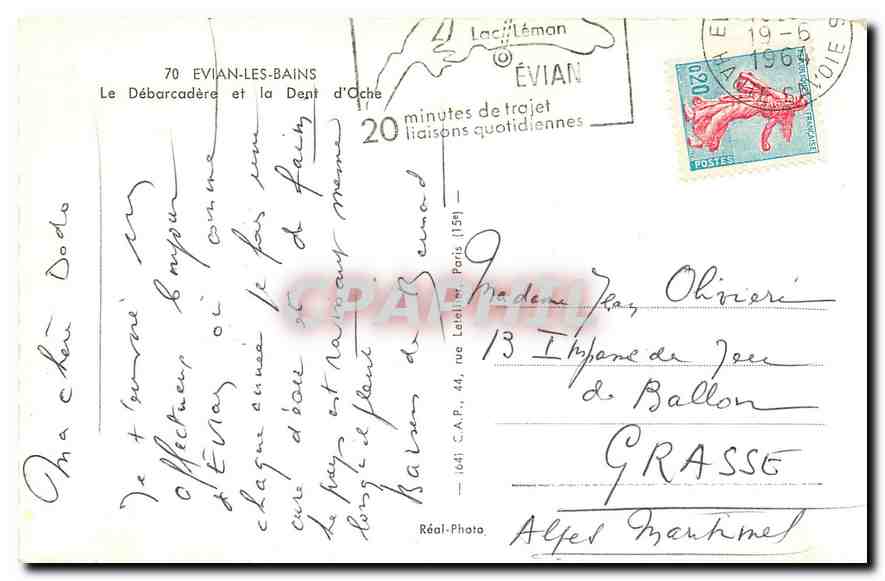 70 EVIAN-LES-BAINS
Le Débarcadère et la Dent d'Oche
Lac Léman
ÉVIAN
20 minutes de trajet
liaisons quotidiennes
19-6
196
0,20
POSTES
FRANÇAISE
Ma chère Dodo
Je t'envoie un
affectueux bonjour
d'Évian où comme
chaque année je fais une
cure d'eau et de faim
Le pays est ravissant même
lorsqu'il pleut
Baisers de Bernard
(64) C.A.P., 44, rue Letellier, Paris (15e)
Réal-Photo
CPAPHIL
Madame Jean Olivieri
13 Impasse de Jeu
de Ballon
GRASSE
Alpes Maritimes